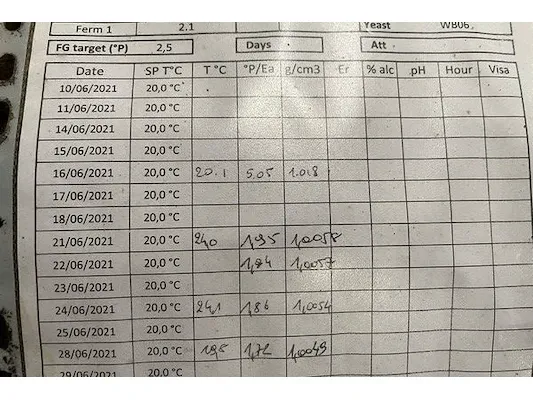 Ferm 1 2.1 Yeast WB06
FG target (°P) 2,5 Days Att
Date SP T°C T °C °P/Ea g/cm3 Er % alc pH Hour Visa
10/06/2021 20,0 °C
11/06/2021 20,0 °C
14/06/2021 20,0 °C
15/06/2021 20,0 °C
16/06/2021 20,0 °C 20.1 5,05 1.018
17/06/2021 20,0 °C
18/06/2021 20,0 °C
21/06/2021 20,0 °C 24,0 1,95 1,0058
22/06/2021 20,0 °C 1,94 1,0057
23/06/2021 20,0 °C
24/06/2021 20,0 °C 24,1 1,86 1,0054
25/06/2021 20,0 °C
28/06/2021 20,0 °C 19,8 1,72 1,0049
29/06/2021 20,0 °C